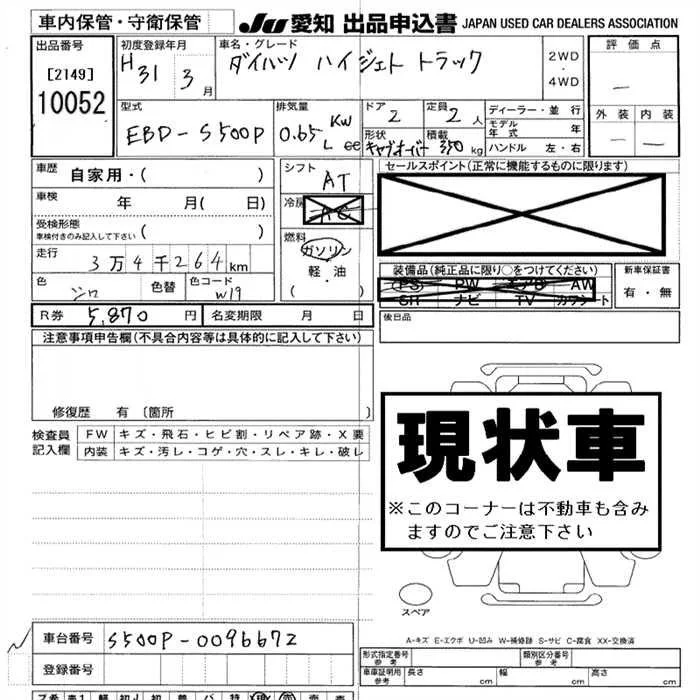 車内保管・守衛保管
JU 愛知 出品申込書 JAPAN USED CAR DEALERS ASSOCIATION
出品番号
[2149]
10052
初度登録年月
H31 3 月
車名・グレード
ダイハツ ハイゼット トラック
2WD
・
4WD
評価点
―
外装 内装
― ―
型式
EBD-S500P
排気量
0.65 Kw
L cc
ドア
2
定員
2 人
形状
キャブオーバ
積載
350 kg
ディーラー・並行
モデル年式 年
ハンドル 左・右
車歴
自家用・( )
車検
年 月( 日)
受検形態
車検付きのみ記入して下さい ( )
走行
3万4千264km
色
シロ
色替
色コード
W19
シフト
AT
冷房
AC
燃料
ガソリン
・
軽・油
( )
セールスポイント(正常に機能するものに限ります)
装備品(純正品に限り○をつけてください)
PS PW エアB AW
SR ナビ TV カワシート
新車保証書
有・無
R券 5,870 円
名変期限 月 日
後日品
注意事項申告欄(不具合内容等は具体的に記入して下さい)
修復歴 有〔箇所 〕
検査員記入欄
FW キズ・飛石・ヒビ割・リペア跡・X要
内装 キズ・汚レ・コゲ・穴・スレ・キレ・破レ
現状車
※このコーナーは不動車も含み
ますのでご注意下さい
スペア
A-キズ E-エクボ U-凹み W-補修跡 S-サビ C-腐食 XX-交換済
車台番号 S500P-0096672
登録番号
形式指定番号
参考
類別区分番号
参考
車庫証明用
参考
長さ cm
幅 cm
高さ cm